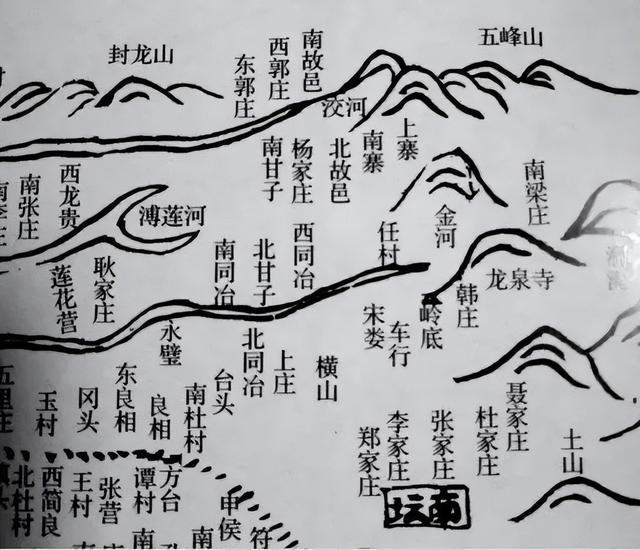 封龙山
五峰山
南故邑
西郭庄
东郭庄
洨河
南甘子
杨家庄
北故邑
南寨
上寨
西龙贵
南张庄
溥莲河
金河
南梁庄
任村
西同冶
北甘子
南同冶
耿家庄
莲花营
龙泉寺
韩庄
岭底
宋娄
车行
永壁
北同冶
上庄
横山
台头
五里庄
玉村
冈头
东良相
良相
南杜村
聂家庄
杜家庄
张家庄
李家庄
郑家庄
土山
南坛
北杜村
西简良
王村
张营
谭村
方台
申侯
符
南
南